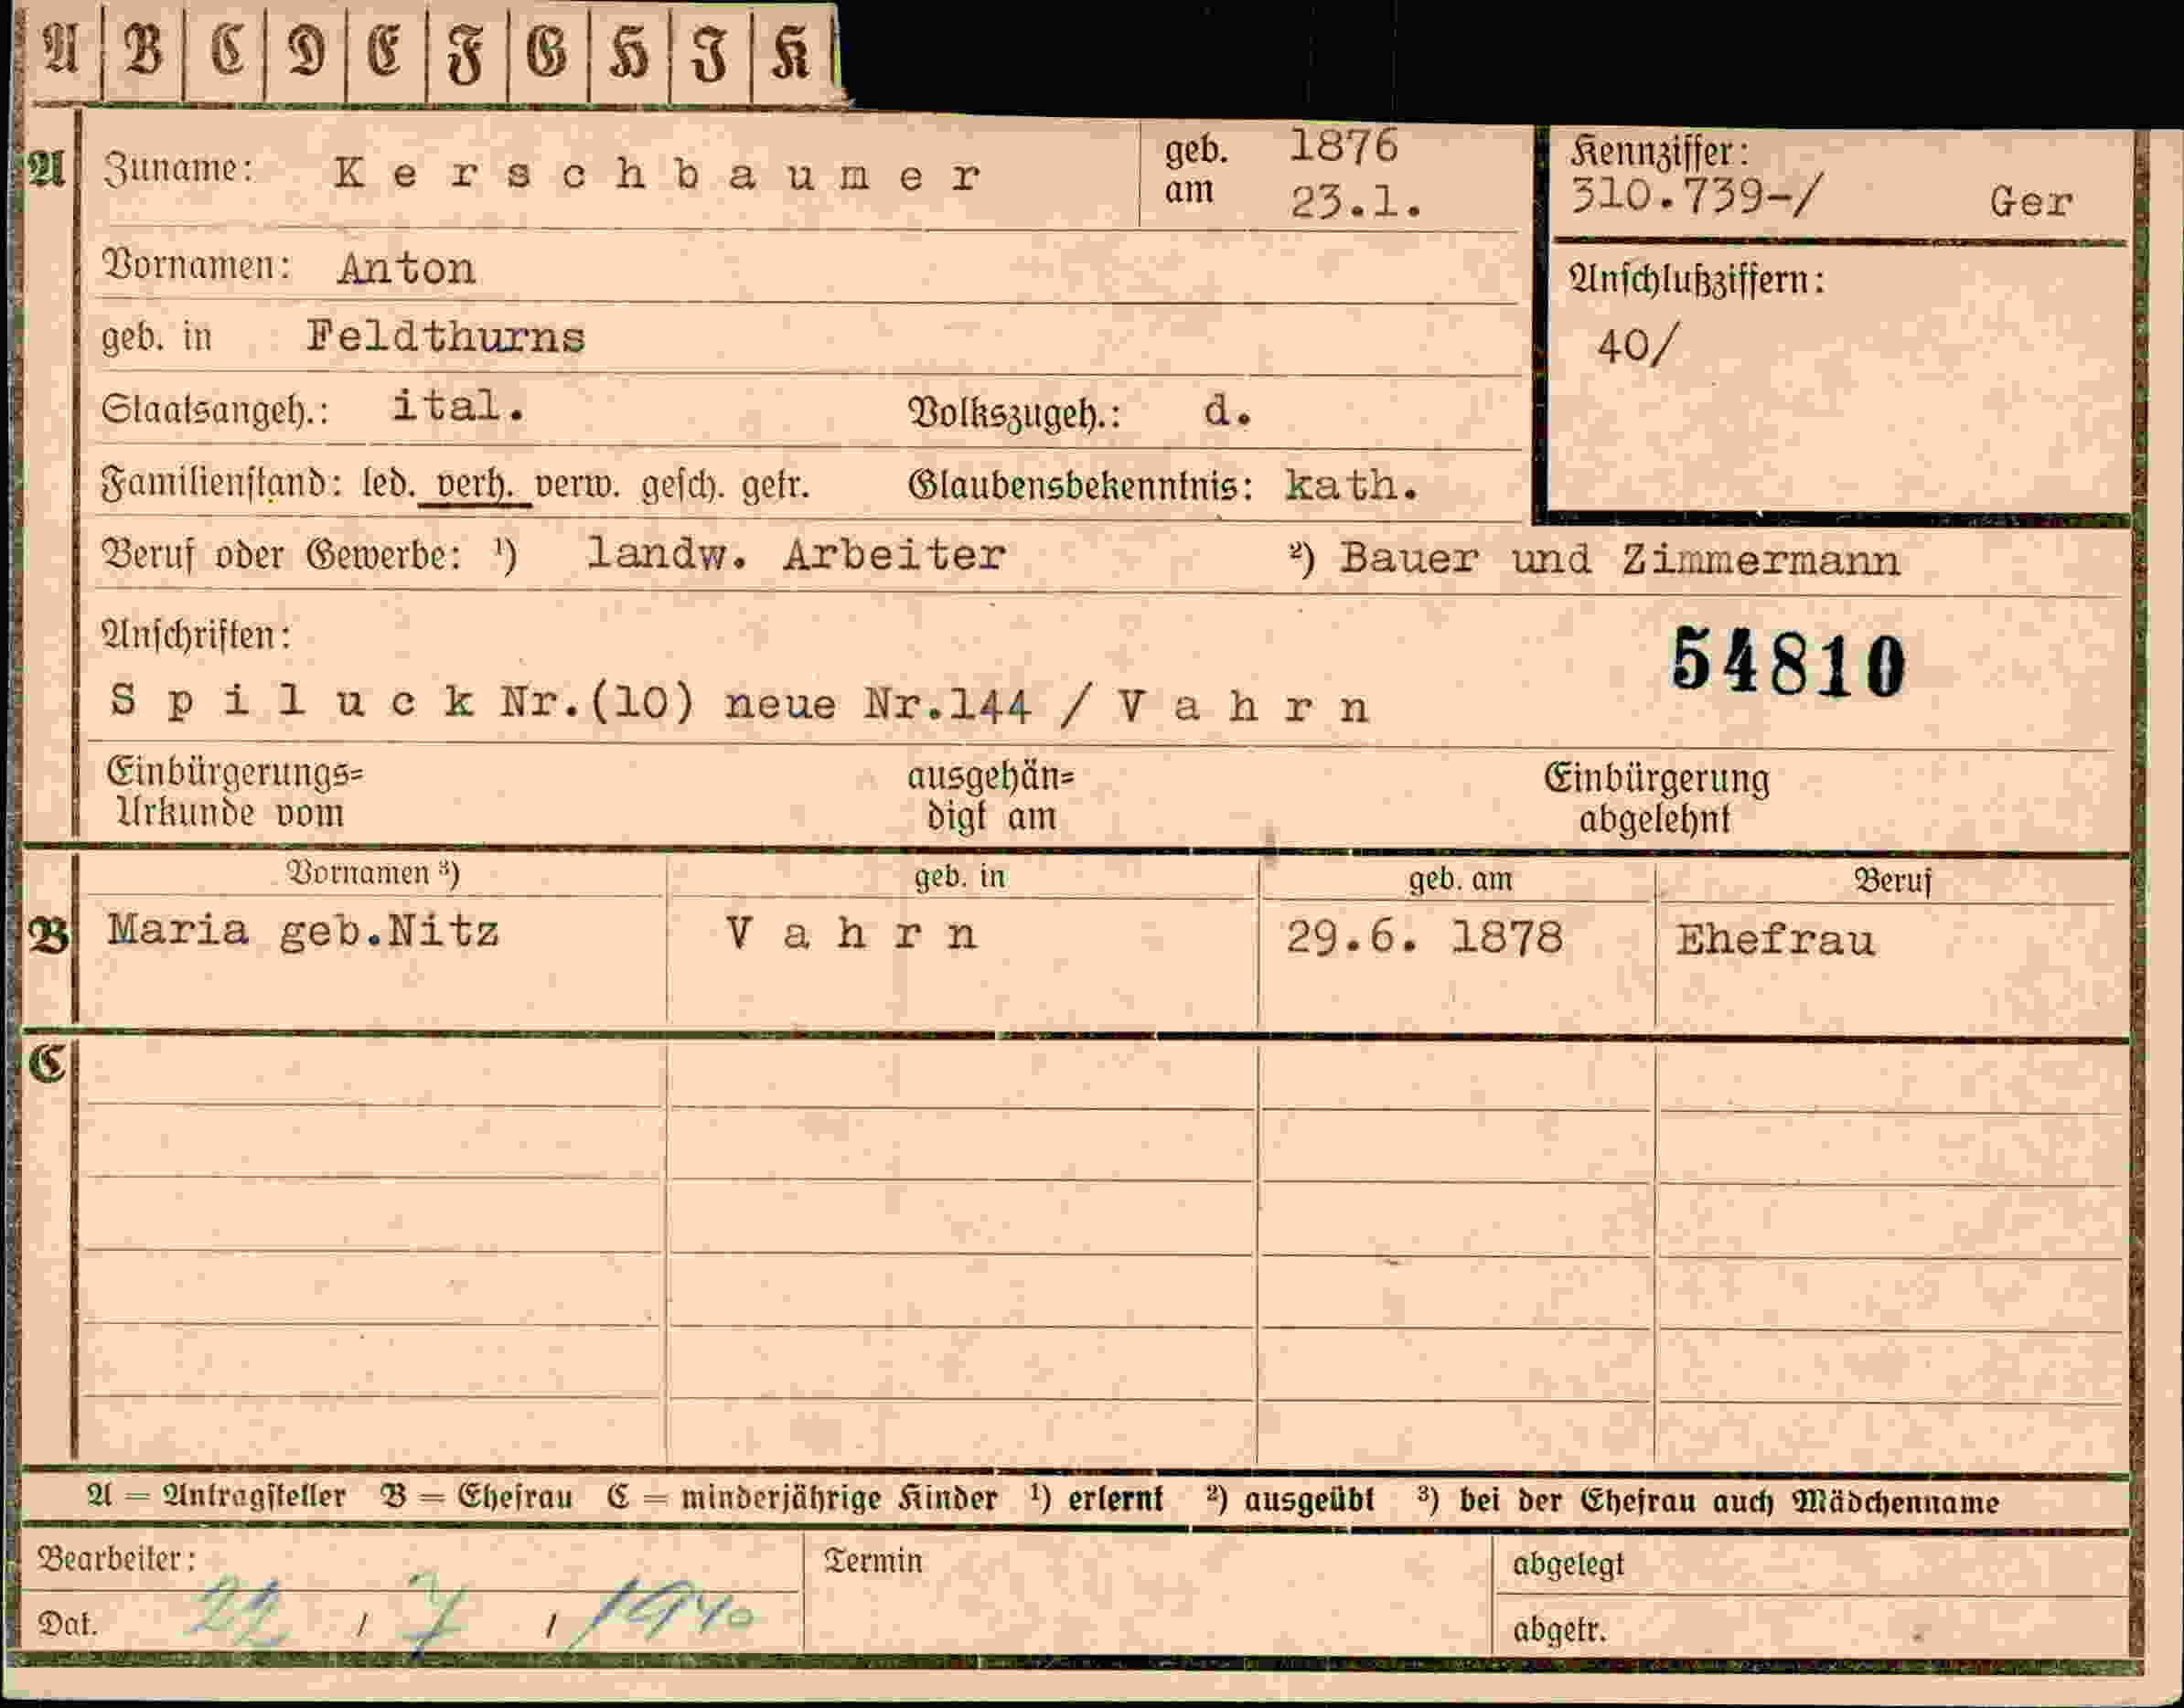 A B C D E F G H J K
A Zuname: Kerschbaumer geb. am 1876 23.1. Kennziffer: 310.739-/ Ger
Vornamen: Anton Anschlußziffern:
geb. in Feldthurns 40/
Staatsangeh.: ital. Volkszugeh.: d.
Familienstand: led. verh. verw. gesch. getr. Glaubensbekenntnis: kath.
Beruf oder Gewerbe: ¹) landw. Arbeiter ²) Bauer und Zimmermann
Anschriften: 54810
Spiluck Nr.(10) neue Nr.144 / Vahrn
Einbürgerungs= ausgehän= Einbürgerung
Urkunde vom digt am abgelehnt
Vornamen ³) geb. in geb. am Beruf
B Maria geb.Nitz Vahrn 29.6. 1878 Ehefrau
C
A = Antragsteller B = Ehefrau C = minderjährige Kinder ¹) erlernt ²) ausgeübt ³) bei der Ehefrau auch Mädchenname
Bearbeiter: Termin abgelegt
Dat. 22 / 7 / 1940 abgetr.